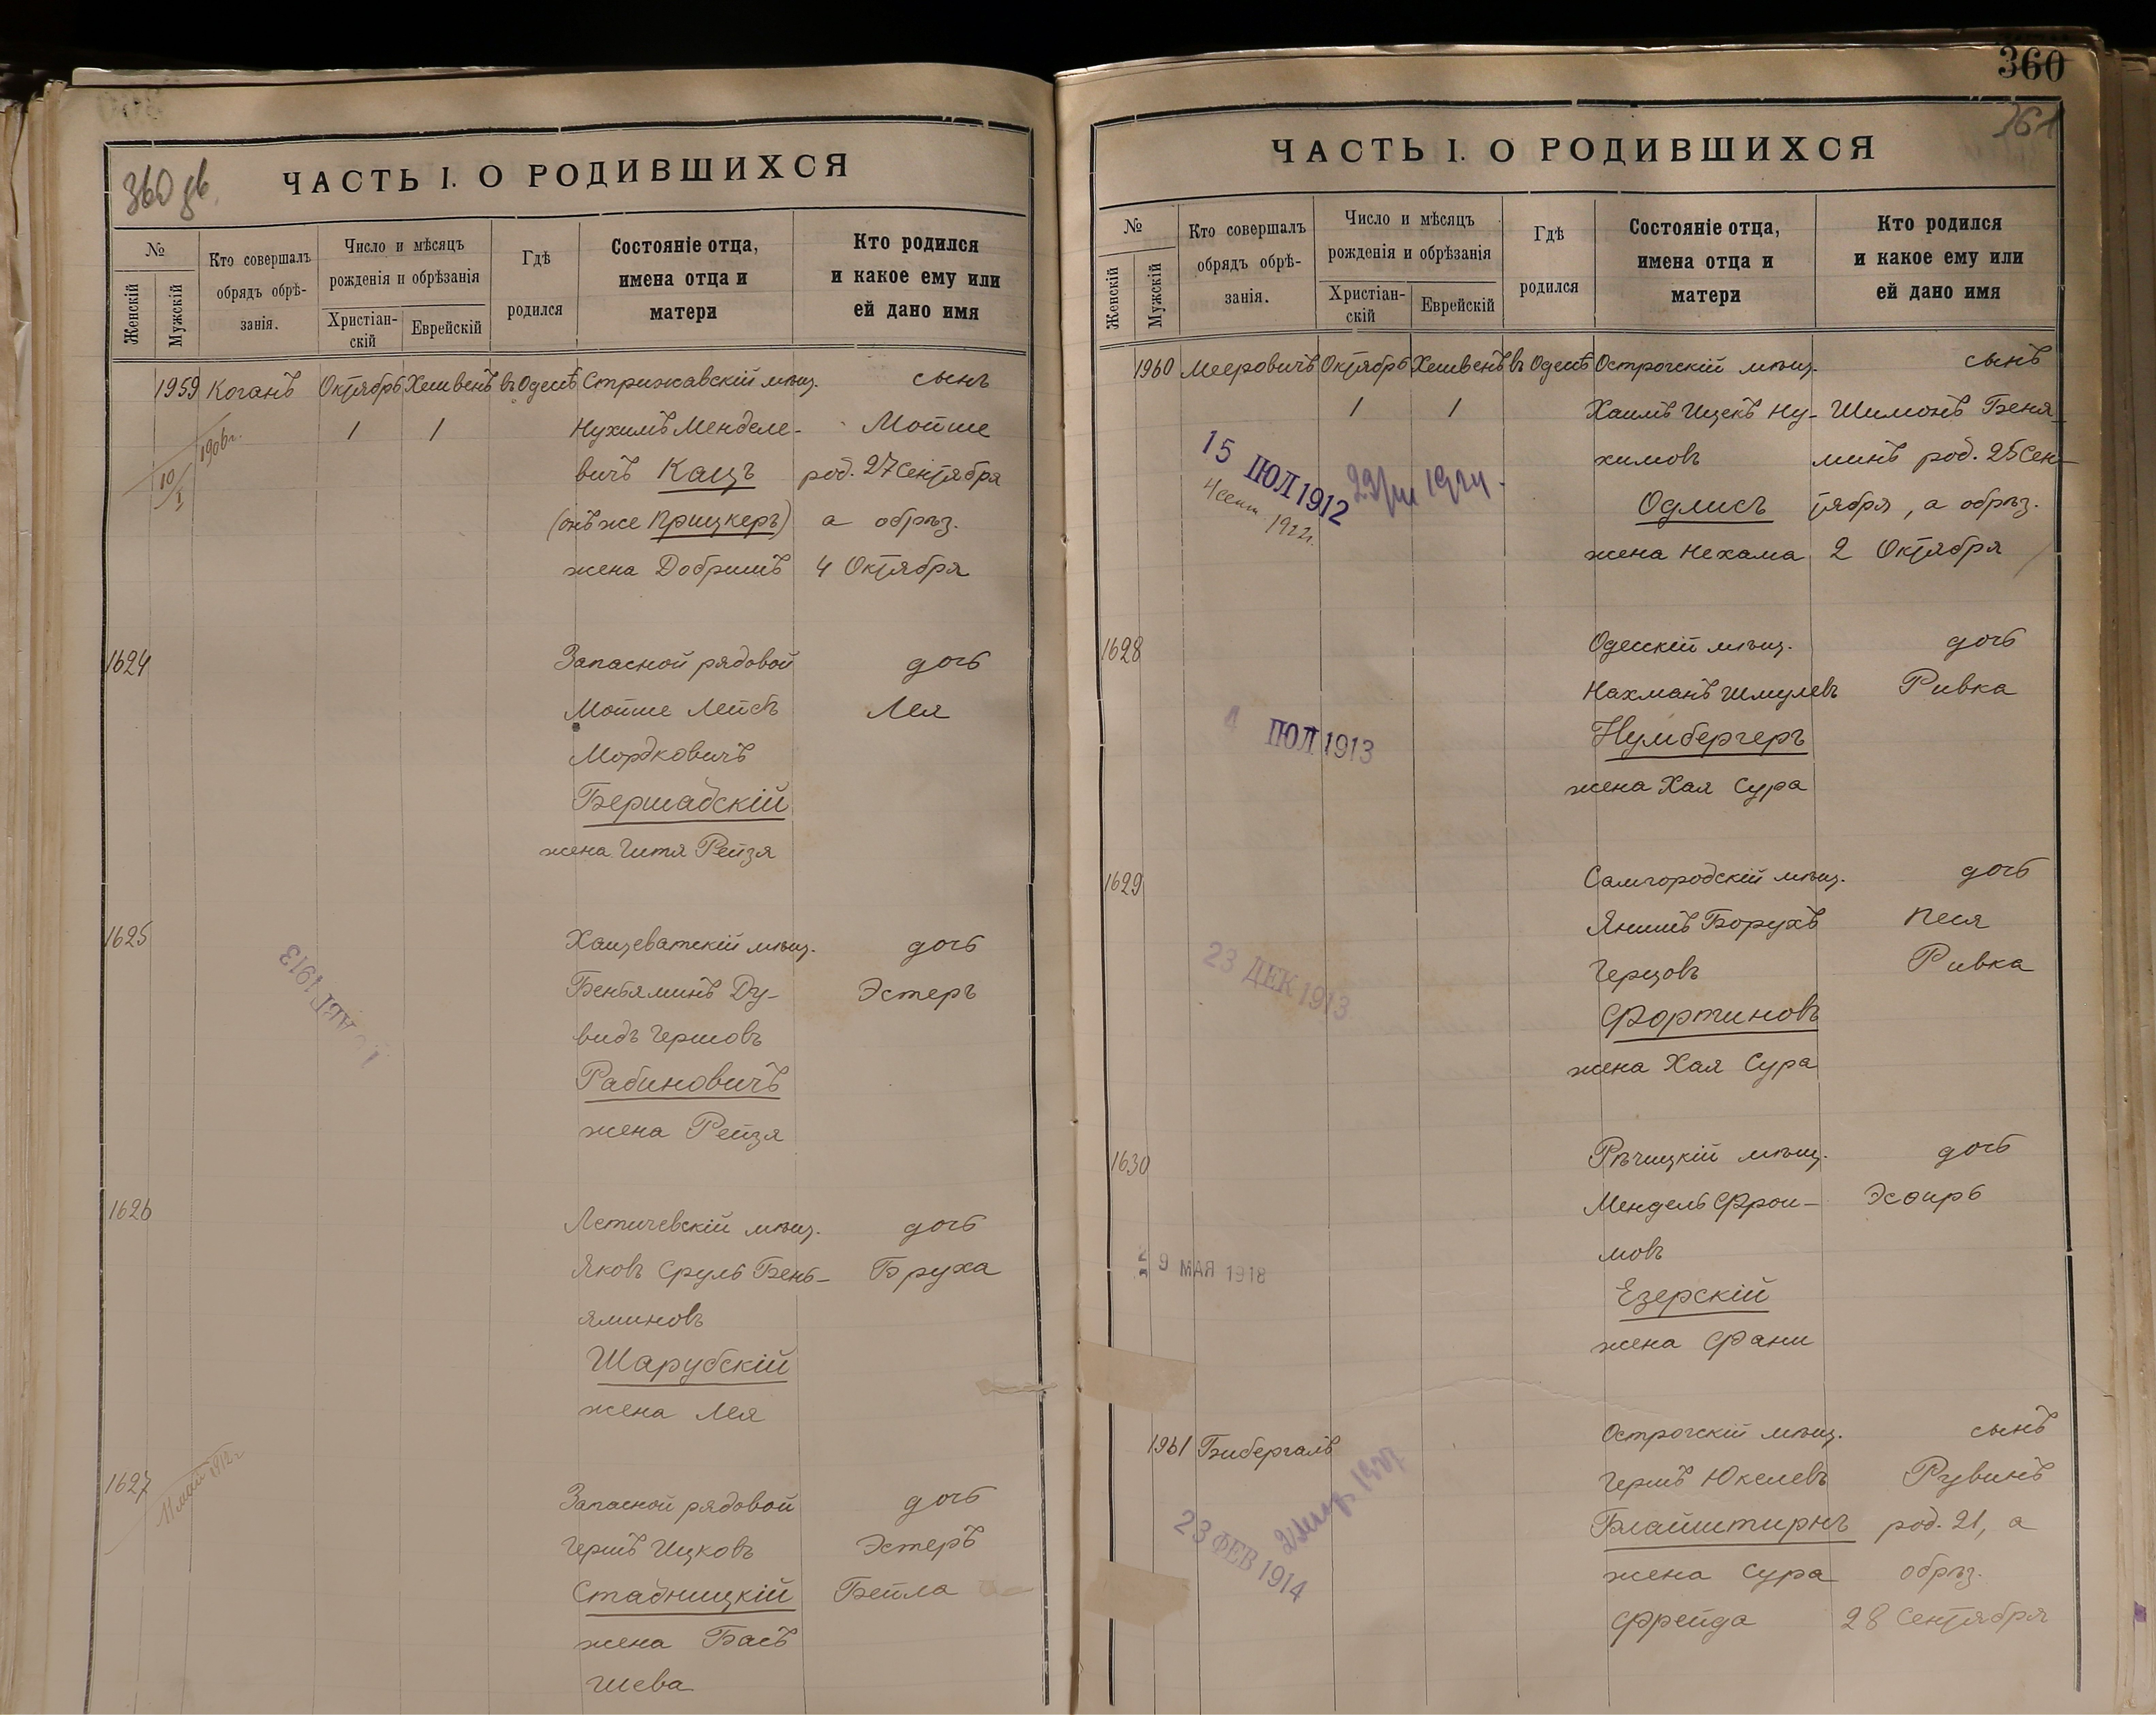 360 дв.
ЧАСТЬ I. О РОДИВШИХСЯ
№
Женскій
Мужскій
Кто совершалъ
обрядъ обрѣ-
занія.
Число и мѣсяцъ
рожденія и обрѣзанія
Христіан-
скій
Еврейскій
Гдѣ
родился
Состояніе отца,
имена отца и
матери
Кто родился
и какое ему или
ей дано имя
1959 Коганъ Октябрь Хешвенъ въ Одессѣ Стрижавскій мѣщ. сынъ
1 1 Нухимъ Менделе- Мойше
10/I 1906г.
вичъ Кацъ род. 27 Сентября
(онъ же Прицкеръ) а обрѣз.
жена Добришъ 4 Октября
1624 Запасной рядовой дочь
Мойше Лейбъ Лея
Мордковичъ
Бершадскій
жена Гитя Рейзя
1625 Хащеватскій мѣщ. дочь
Беньяминъ Ду- Эстеръ
видъ Гершовъ
АВГ 1913
Рабиновичъ
жена Рейзя
1626 Летичевскій мѣщ. дочь
Яковъ Сруль Бень- Бруха
яминовъ
Шарубскій
жена Лея
1627 Запасной рядовой дочь
11 май 1912 г
Гершъ Ицковъ Эстеръ
Стадницкій Бейла
жена Басъ
Шева
360
361
ЧАСТЬ I. О РОДИВШИХСЯ
№
Женскій
Мужскій
Кто совершалъ
обрядъ обрѣ-
занія.
Число и мѣсяцъ
рожденія и обрѣзанія
Христіан-
скій
Еврейскій
Гдѣ
родился
Состояніе отца,
имена отца и
матери
Кто родился
и какое ему или
ей дано имя
1960 Мееровичъ Октябрь Хешвенъ въ Одессѣ Острогскій мѣщ. сынъ
1 1 Хаимъ Ицекъ Ну- Шимонъ Беня-
химовъ минъ род. 25 Сен-
15 ІЮЛ 1912
Одлисъ тября, а обрѣз.
жена Нехама 2 Октября
1628 Одесскій мѣщ. дочь
Нахманъ Шмулевъ Ривка
4 ІЮЛ 1913
Нумбергеръ
жена Хая Сура
1629 Самгородскій мѣщ. дочь
Янишъ Борухъ Песя
Герцовъ Ривка
23 ДЕК 1913
Фортиновъ
жена Хая Сура
1630 Рѣчицкій мѣщ. дочь
Мендель Фрои- Эсѳирь
мовъ
9 МАЯ 1918
Езерскій
жена Фани
1961 Бибергалъ Острогскій мѣщ. сынъ
Гершъ Юкелевъ Рувинъ
Блайштирнъ род. 21, а
23 ФЕВ 1914
жена Сура обрѣз.
Фрейда 28 Сентября